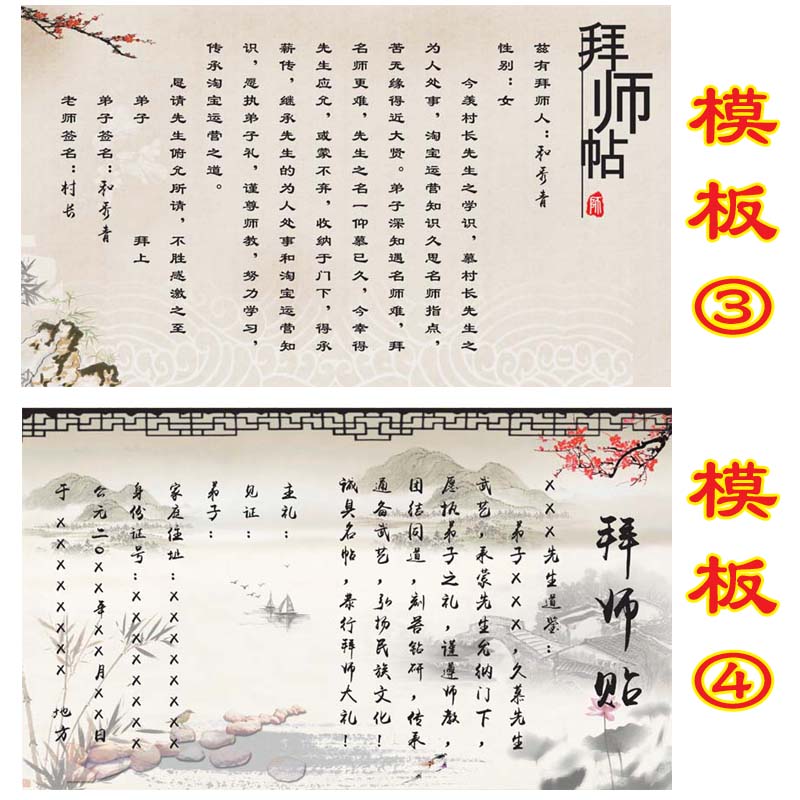 拜师帖
师
兹有拜师人:和秀青
性别:女
今羡村长先生之学识,慕村长先生之
为人处事,淘宝运营知识久思名师指点,
苦无缘得近大贤。弟子深知遇名师难,拜
名师更难,先生之名一仰慕已久,今幸得
先生应允,或蒙不弃,收纳于门下,得承
薪传,继承先生的为人处事和淘宝运营知
识,愿执弟子礼,谨尊师教,努力学习,
传承淘宝运营之道。
恳请先生俯允所请,不胜感激之至
弟子 拜上
弟子签名:和秀青
老师签名:村长
模板③
拜师贴
×××先生道鉴:
弟子×××,久慕先生
武艺,承蒙先生允纳门下,
愿执弟子之礼,谨遵师教,
团结同道,刻苦钻研,传承
通备武艺,弘扬民族文化!
诚具名帖,恭行拜师大礼!
主礼:
见证:
弟子:
家庭住址:××××××××
身份证号:××××××××
公元二〇××年××月××日
于×××××××× 地方
模板④